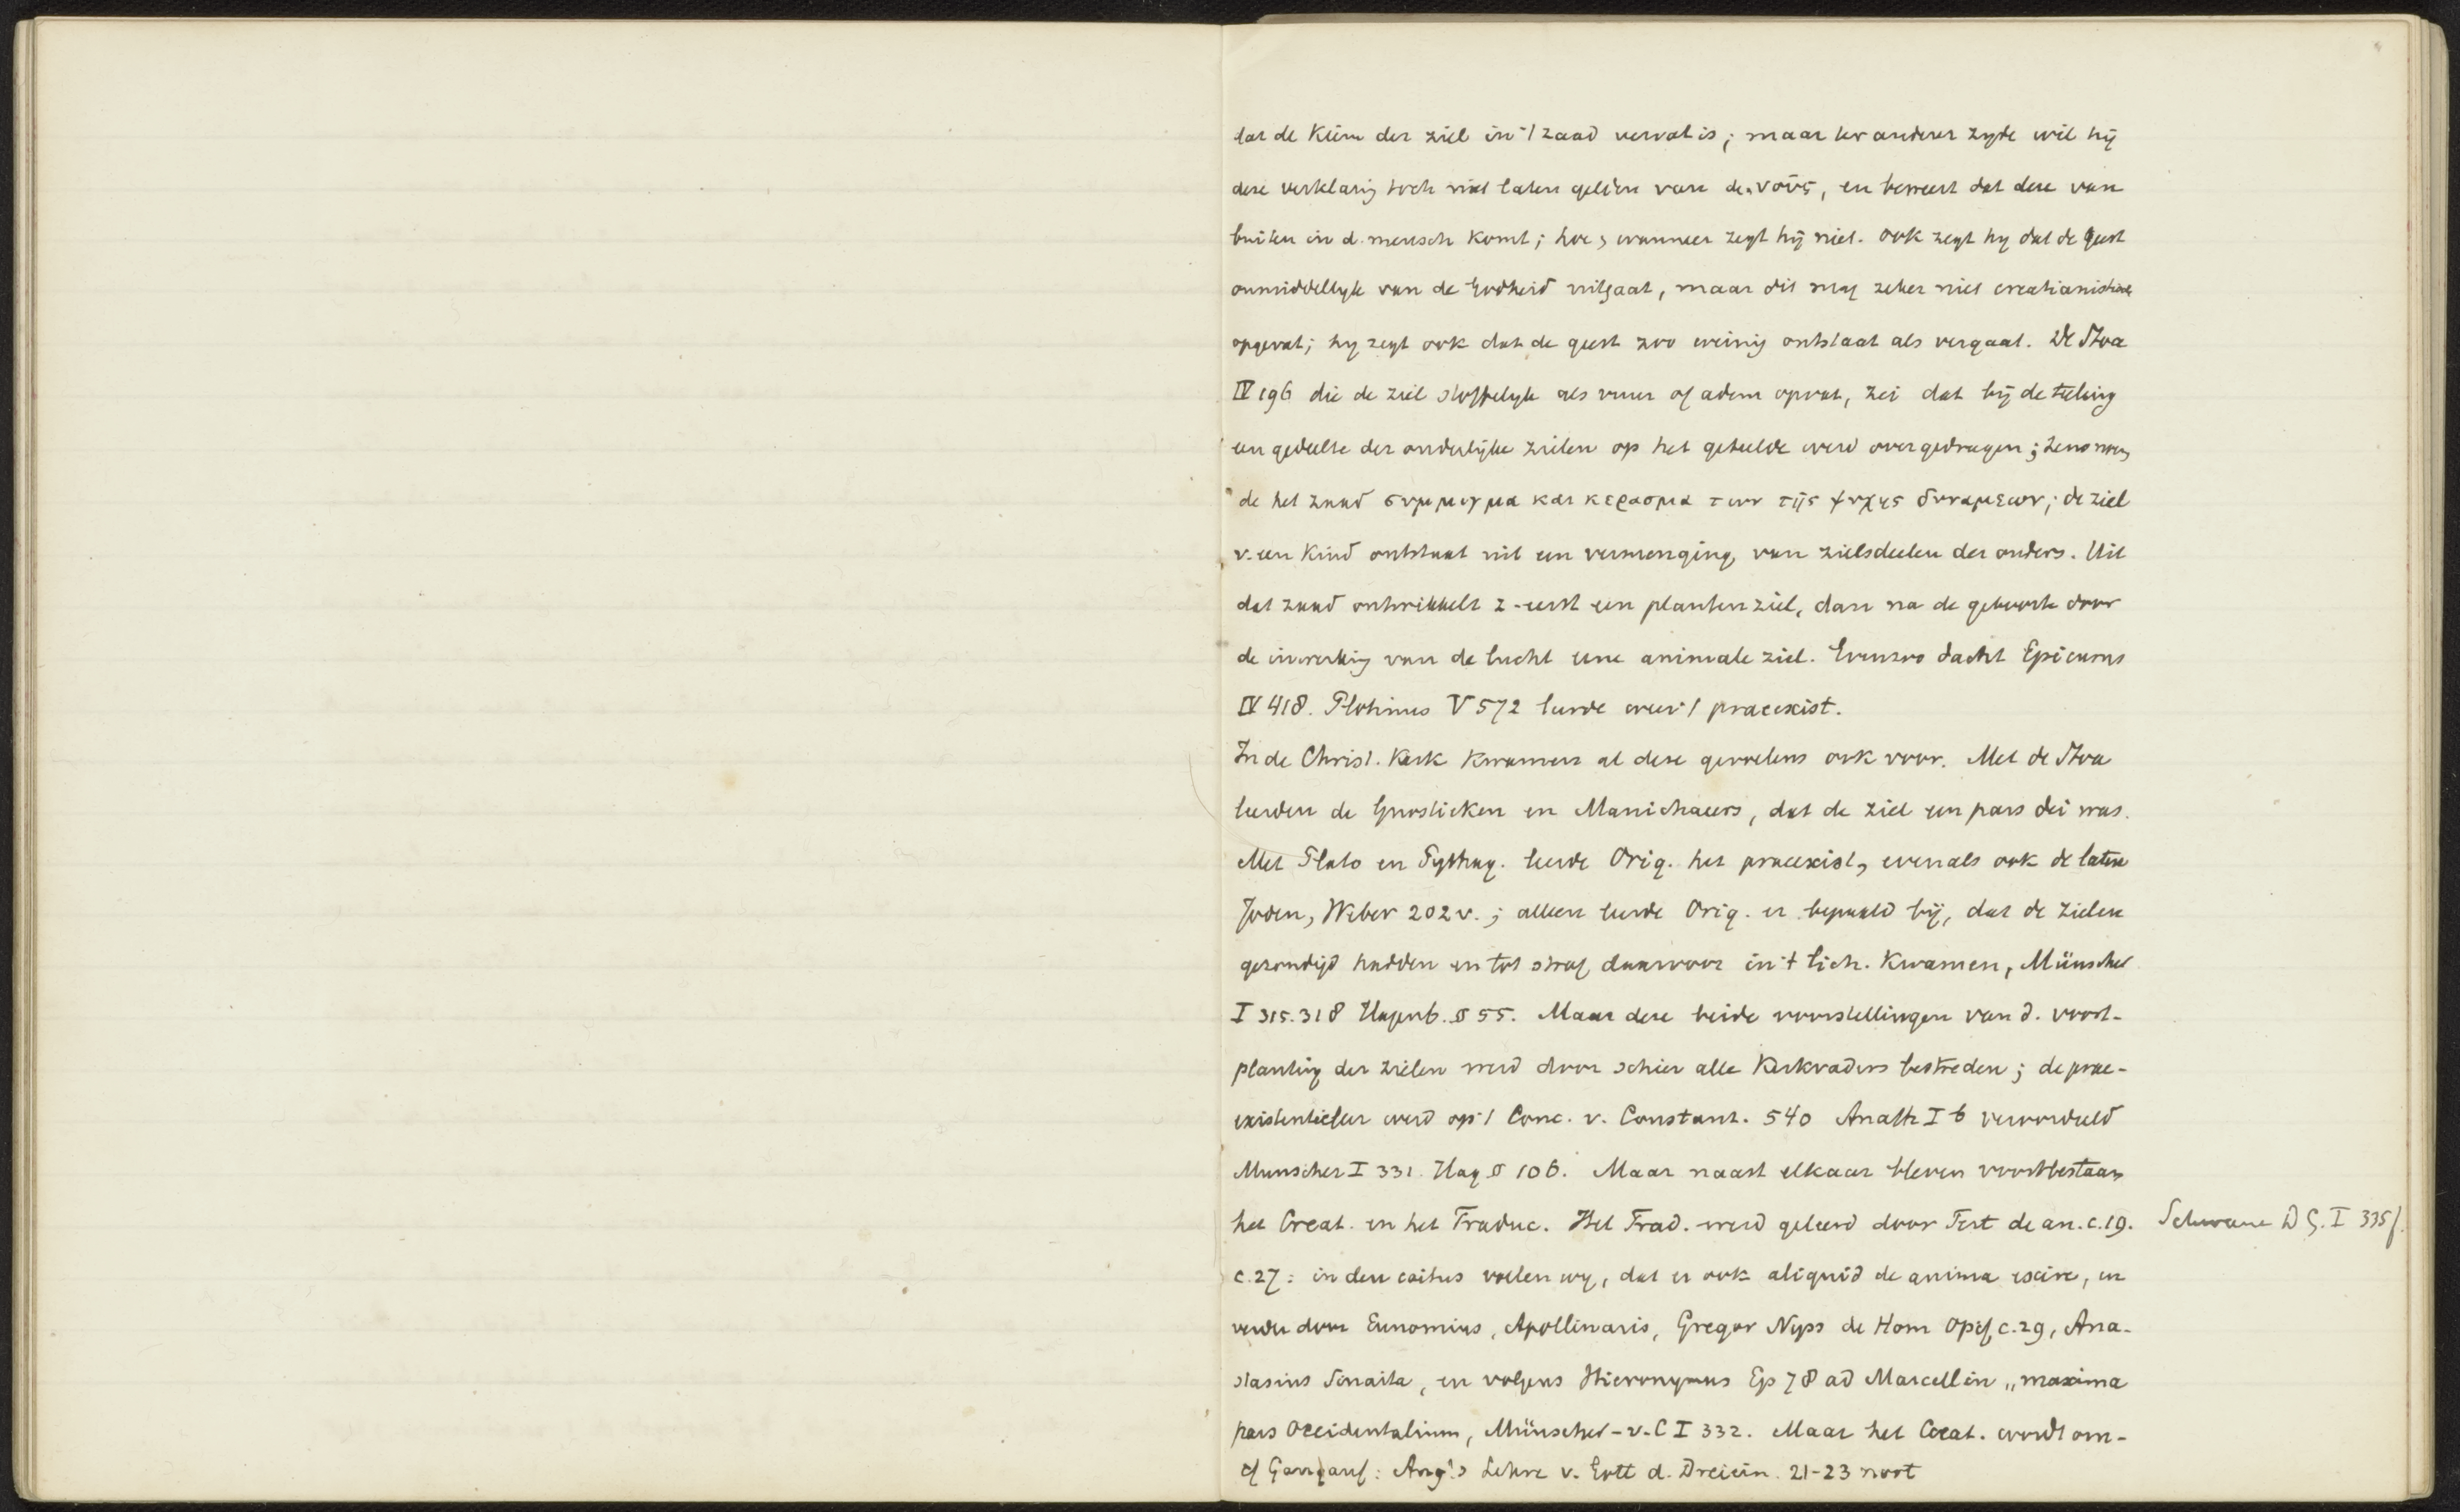 dat de Kiem der ziel in 't zaad vervat is; maar ter anderer zyde wil hij
deze verklaring toch niet laten gelden van de νοῦς, en beweert dat deze van
buiten in d. mensch komt; hoe, wanneer zegt hij niet. Ook zegt hy dat de geest
onmiddellyk van de Godheid uitgaat, maar dit mag zeker niet creatianistisch
opgevat; hy zegt ook dat de geest zoo weinig ontstaat als vergaat. De Stoa
IV 196 die de ziel stoffelyk als vuur of adem opvat, zei dat bij de teeling
een gedeelte der ouderlijke zielen op het geteelde werd overgedragen; Zeno noem,
de het zaad συμμιγμα και κερασμα των τῆς ψυχης δυναμεων; de ziel
v. een Kind ontstaat uit een vermenging van zielsdeelen der ouders. Uit
dat zaad ontwikkelt z. eerst een plantenziel, dan na de geboorte door
de inwerking van de lucht eene animale ziel. Evenzoo dacht Epicurus
IV 418. Plotinus V 572 leerde weer 't praeexist.
In de Christ. Kerk Kwamen al deze gevoelens ook voor. Met de Stoa
leerden de Gnostieken en Manichaeers, dat de ziel een pars dei was.
Met Plato en Pythag. leerde Orig. het praeexist, evenals ook de latere
Joden, Weber 202 v.; alleen leerde Orig. er bepaald bij, dat de zielen
gezondigd hadden en tot straf daarvoor in 't lich. Kwamen, Münscher
I 315.318 Hagenb. § 55. Maar deze beide voorstellingen van d. voort-
planting der zielen werd door schier alle Kerkvaders bestreden; de prae-
existentieleer werd op 't Conc. v. Constant. 540 Anath I 6 veroordeeld
Munscher I 331. Hag § 106. Maar naast elkaar bleven voortbestaan
het Creat. en het Traduc. Het Trad. werd geleerd door Tert de an. c. 19. Schwane D G. I 335f.
c. 27: in den coitus voelen wy, dat er ook aliquid de anima exire, en
verder door Eunomius, Apollinaris, Gregor Nyss de Hom Opif c. 29, Ana-
stasius Sinaita, en volgens Hieronymus Ep 78 ad Marcellin „maxima
pars Occidentalium, Münscher - v. C I 332. Maar het Creat. wordt om-
cf Gangauf: Aug's Lehre v. Gott d. Dreiein. 21-23 noot